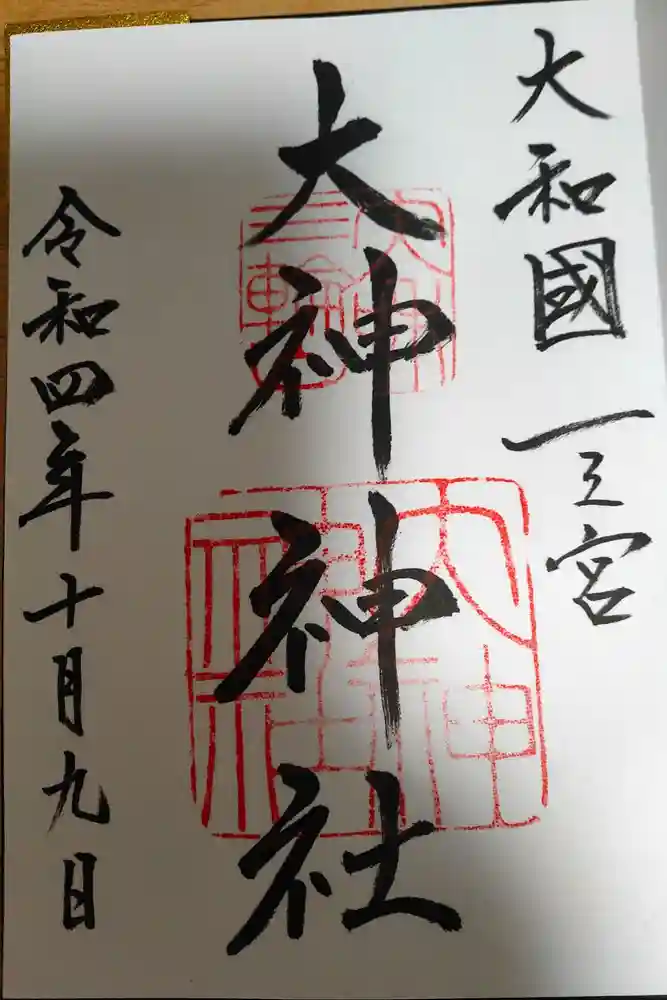 大和國一之宮
大神神社
令和四年十月九日